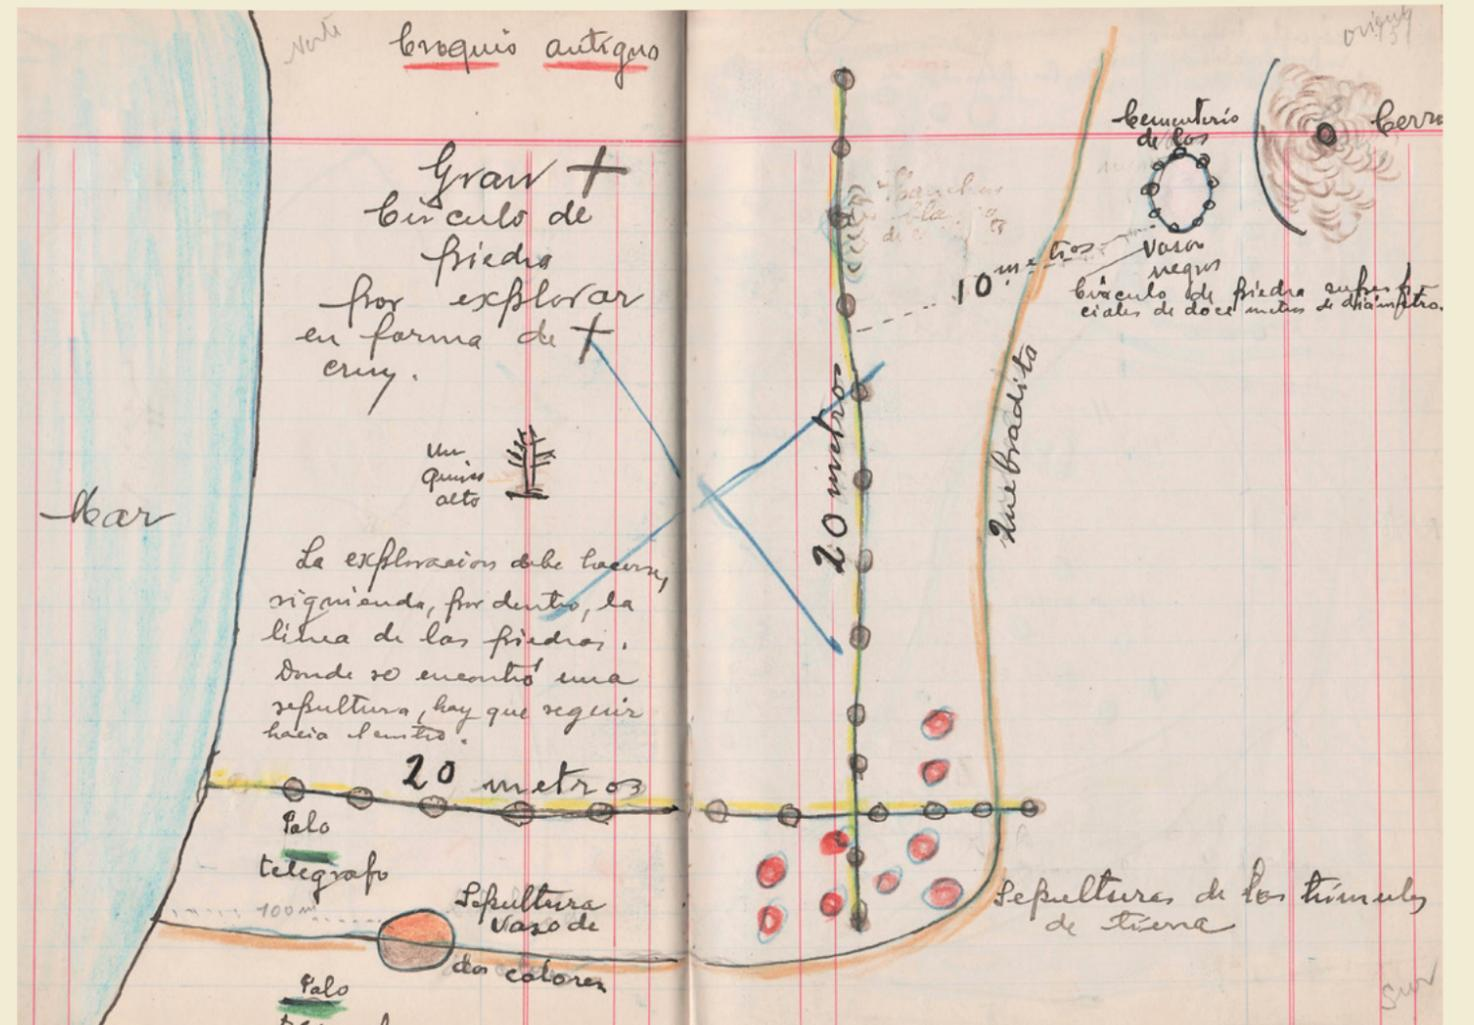 Norte
Croquis antiguo
Gran +
Círculo de
piedra
por explorar
en forma de +
cruz.
Un
Quisco
alto
Mar
La exploracion debe hacerse,
siguiendo, por dentro, la
línea de las piedras.
Donde se encontró una
sepultura, hay que seguir
hacia el centro.
20 metros
Palo
telegrafo
100 m
Sepultura
Vaso de
dos colores
Palo
Oriente
Cementerio
de los
Vasos
negros
Cerro
Manchas
blancas
de
10 metros
Círculo de piedra superfi-
ciales de doce metros de diámetro.
20 metros
Quebradita
Sepulturas de los túmulos
de tierra
Sur